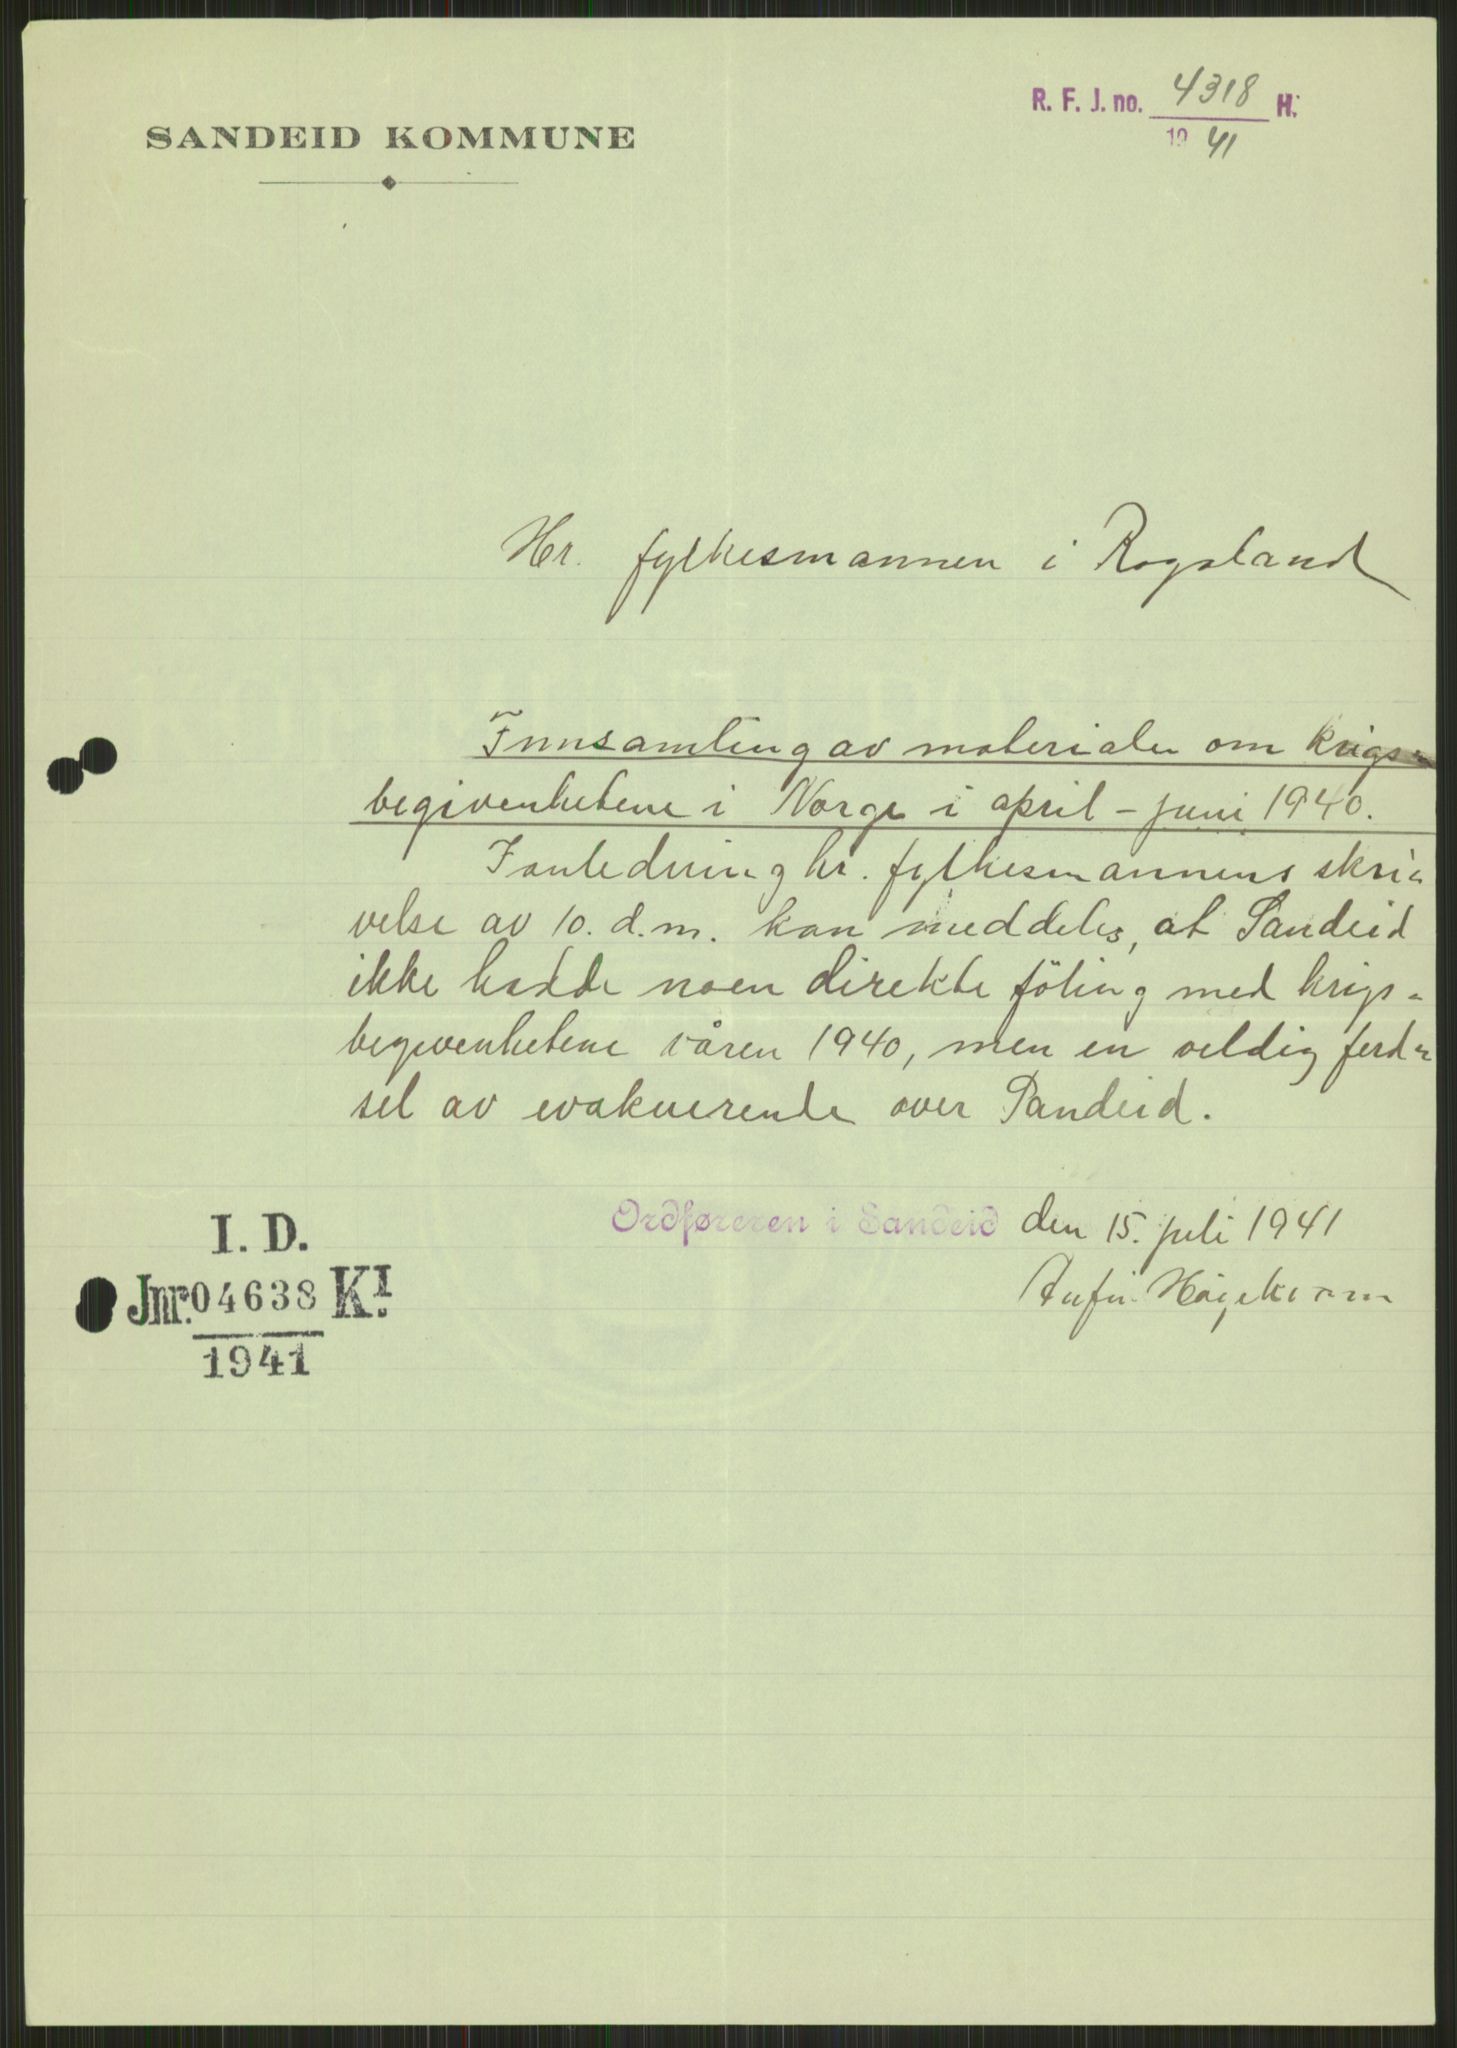 SANDEID KOMMUNE
R. F. J. no. 4318 H.
1941
Hr. fylkesmannen i Rogaland
Innsamling av materialer om krigs-
begivenhetene i Norge i april - juni 1940.
I anledning hr. fylkesmannens skri-
velse av 10. d.m. kan meddeles, at Sandeid
ikke hadde noen direkte föling med krigs-
begivenhetene våren 1940, men en veldig ferd-
sel av evakuerende over Sandeid.
Ordføreren i Sandeid den 15. juli 1941
I. D.
Jnr. 04638 K.I
1941